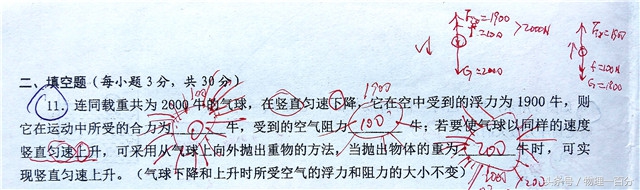 F浮=1900
f=100
>2000N
G=2000
F浮=1900
f=100N
G=1800
二、填空题（每小题3分，共30分）
11. 连同载重共为2000牛的气球，在竖直匀速下降，它在空中受到的浮力为1900牛，则
1900
它在运动中所受的合力为 0 牛，受到的空气阻力 100 牛；若要使气球以同样的速度
竖直匀速上升，可采用从气球上向外抛出重物的方法，当抛出物体的重为 200 牛时，可实
现竖直匀速上升。（气球下降和上升时所受空气的浮力和阻力的大小不变）
头条号 / 物理一百分